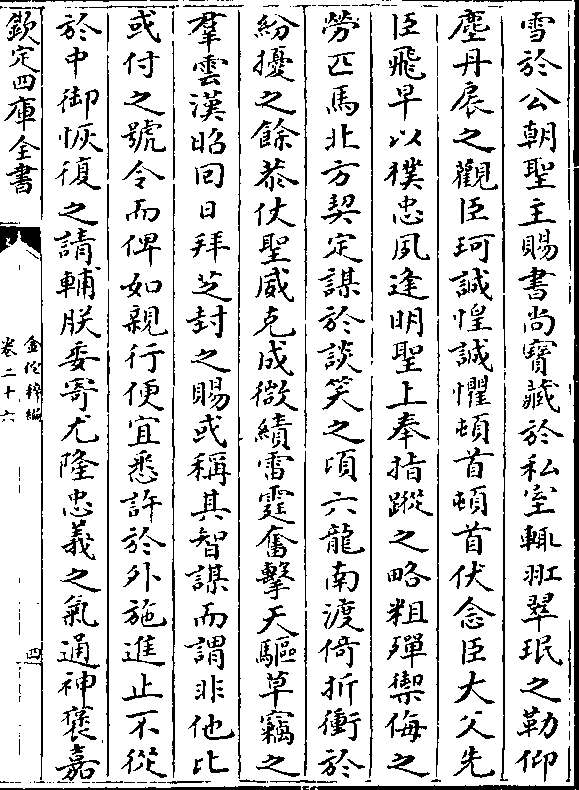 雪於公朝聖主賜書尚寶藏於私室輒䟽翠珉之勒仰
塵丹扆之觀臣珂誠惶誠懼頓首頓首伏念臣大父先
臣飛早以樸忠夙逢明聖上奉指蹤之略粗殫禦侮之
勞匹馬北方契定謀於談笑之頃六龍南渡倚折衝於
紛擾之餘恭仗聖威克成微績雷霆奮擊天驅草竊之
羣雲漢昭回日拜芝封之賜或稱其智謀而謂非他比
或付之號令而俾如親行便宜悉許於外施進止不從
於中御恢復之請輔朕委寄尤隆忠義之氣通神褒嘉
欽定四庫全書
金佗稡編
卷二十六
四